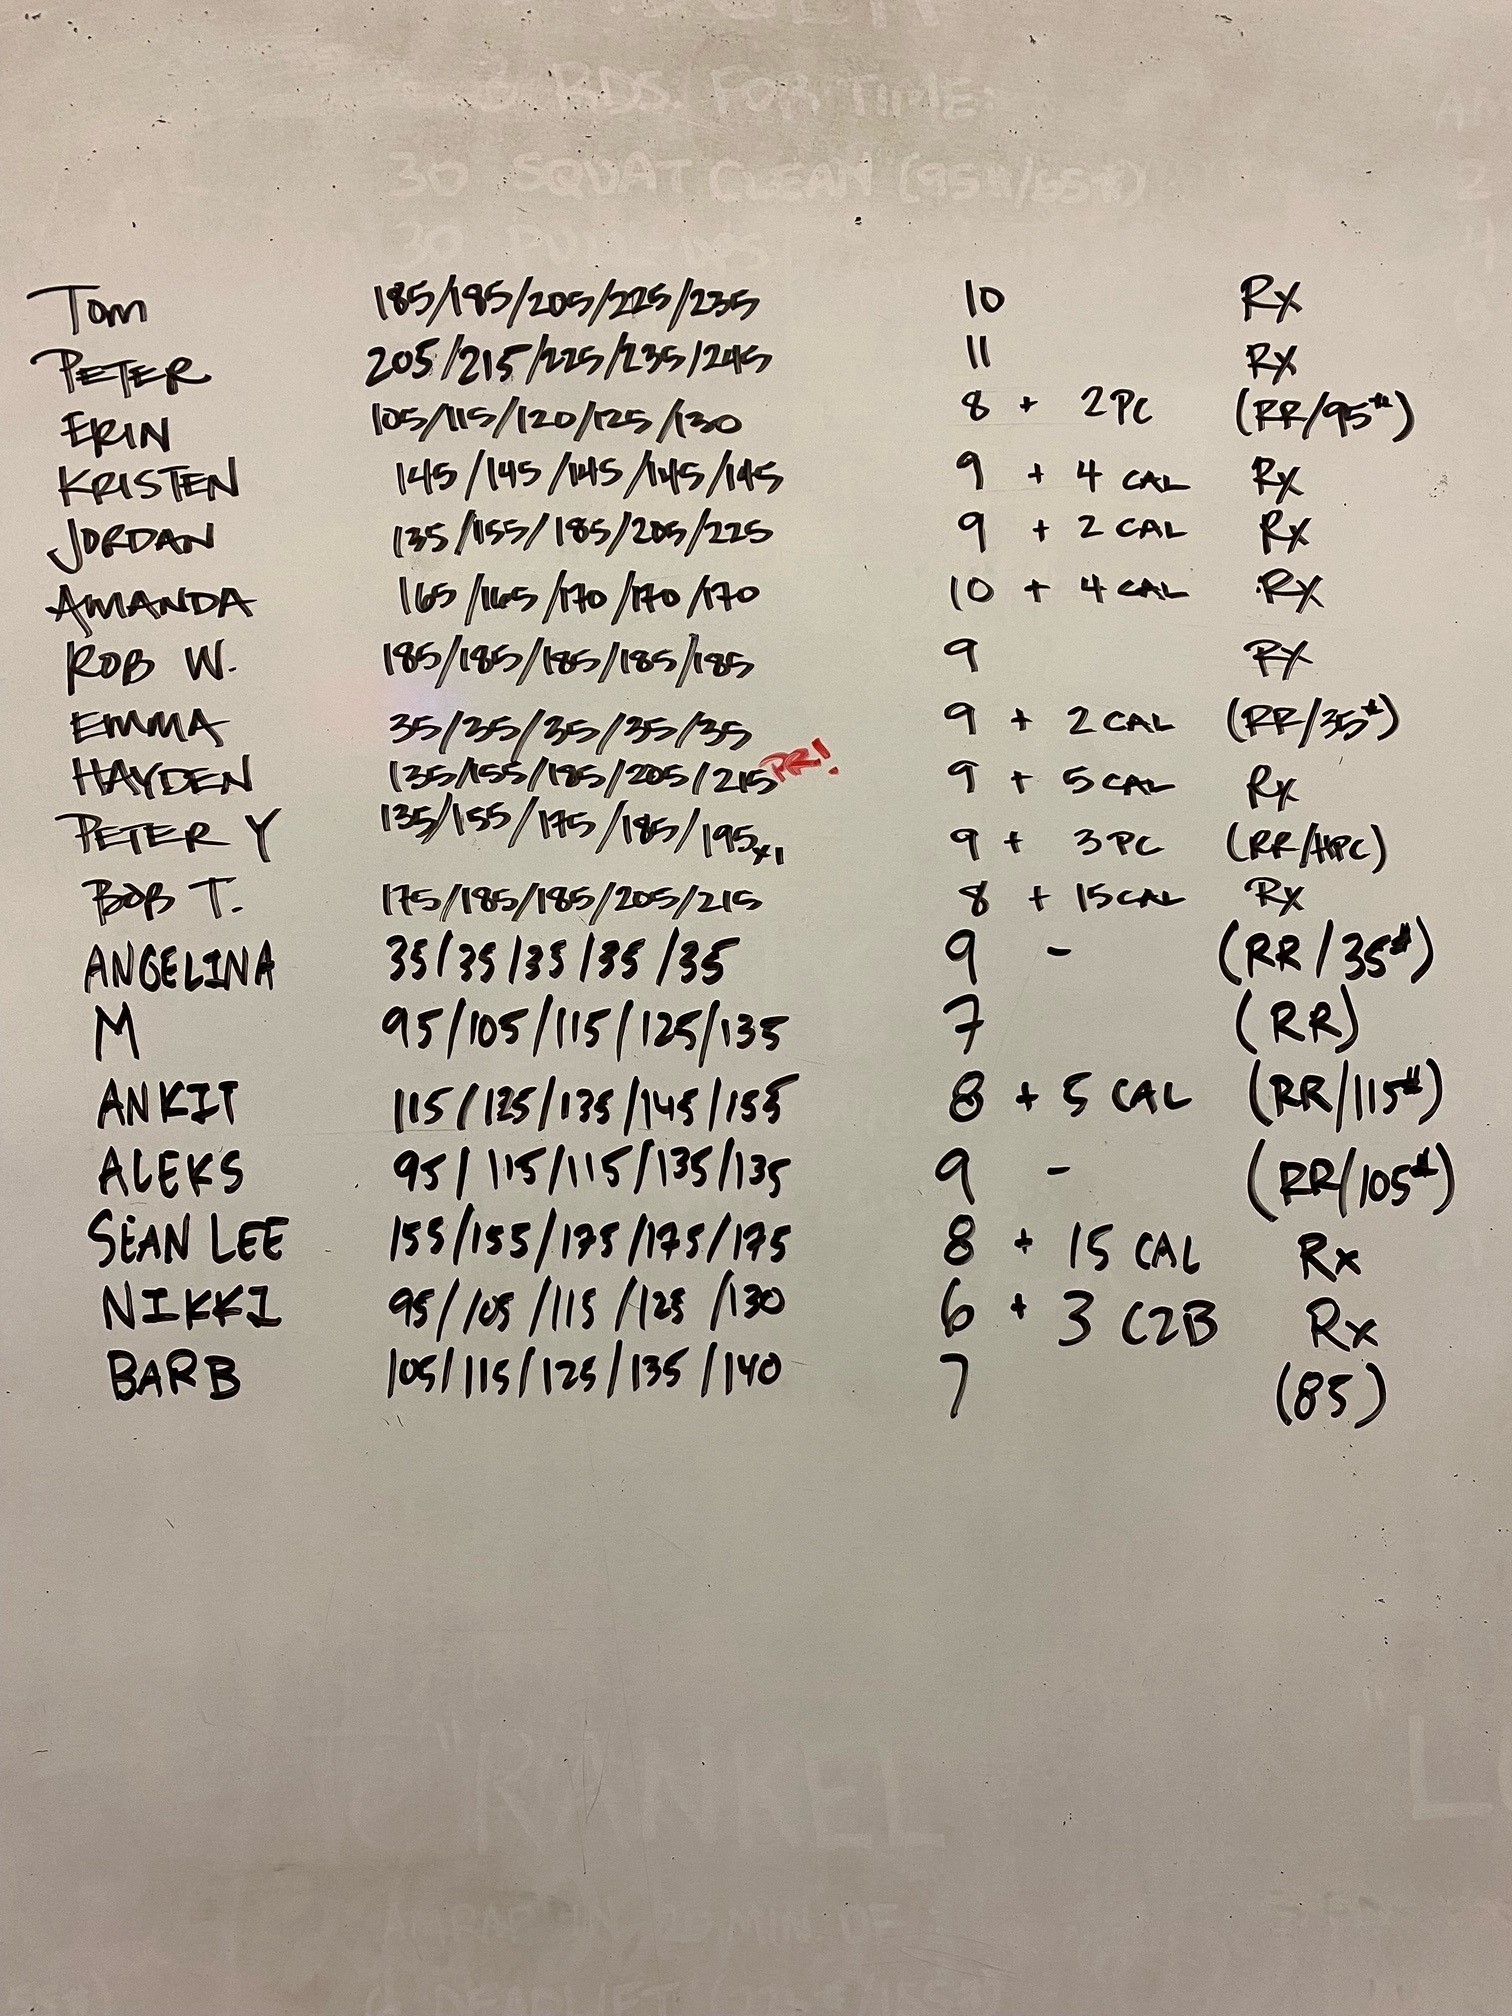 3 RDS. FOR TIME:
30 SQUAT CLEAN (95#/65#)
30 PULL-UPS
Tom 185/185/205/225/235 10 Rx
PETER 205/215/225/235/245 11 Rx
ERIN 105/115/120/125/130 8 + 2PC (RR/95#)
KRISTEN 145/145/145/145/145 9 + 4 CAL Rx
JORDAN 135/155/185/205/225 9 + 2 CAL Rx
AMANDA 165/165/170/170/170 10 + 4 CAL Rx
ROB W. 185/185/185/185/185 9 RX
EMMA 35/35/35/35/35 9 + 2 CAL (RR/35#)
HAYDEN 135/155/185/205/215 PR! 9 + 5 CAL Rx
PETER Y 135/155/175/185/195x1 9 + 3 PC (RR/HPC)
BOB T. 175/185/185/205/215 8 + 15 CAL Rx
ANGELINA 35/35/35/35/35 9 - (RR/35#)
M 95/105/115/125/135 7 (RR)
ANKIT 115/125/135/145/155 8 + 5 CAL (RR/115#)
ALEKS 95/115/115/135/135 9 - (RR/105#)
SEAN LEE 155/155/175/175/175 8 + 15 CAL Rx
NIKKI 95/105/115/125/130 6 + 3 C2B Rx
BARB 105/115/125/135/140 7 (85)
AMRAP IN MIN. OF
DEADLIFT